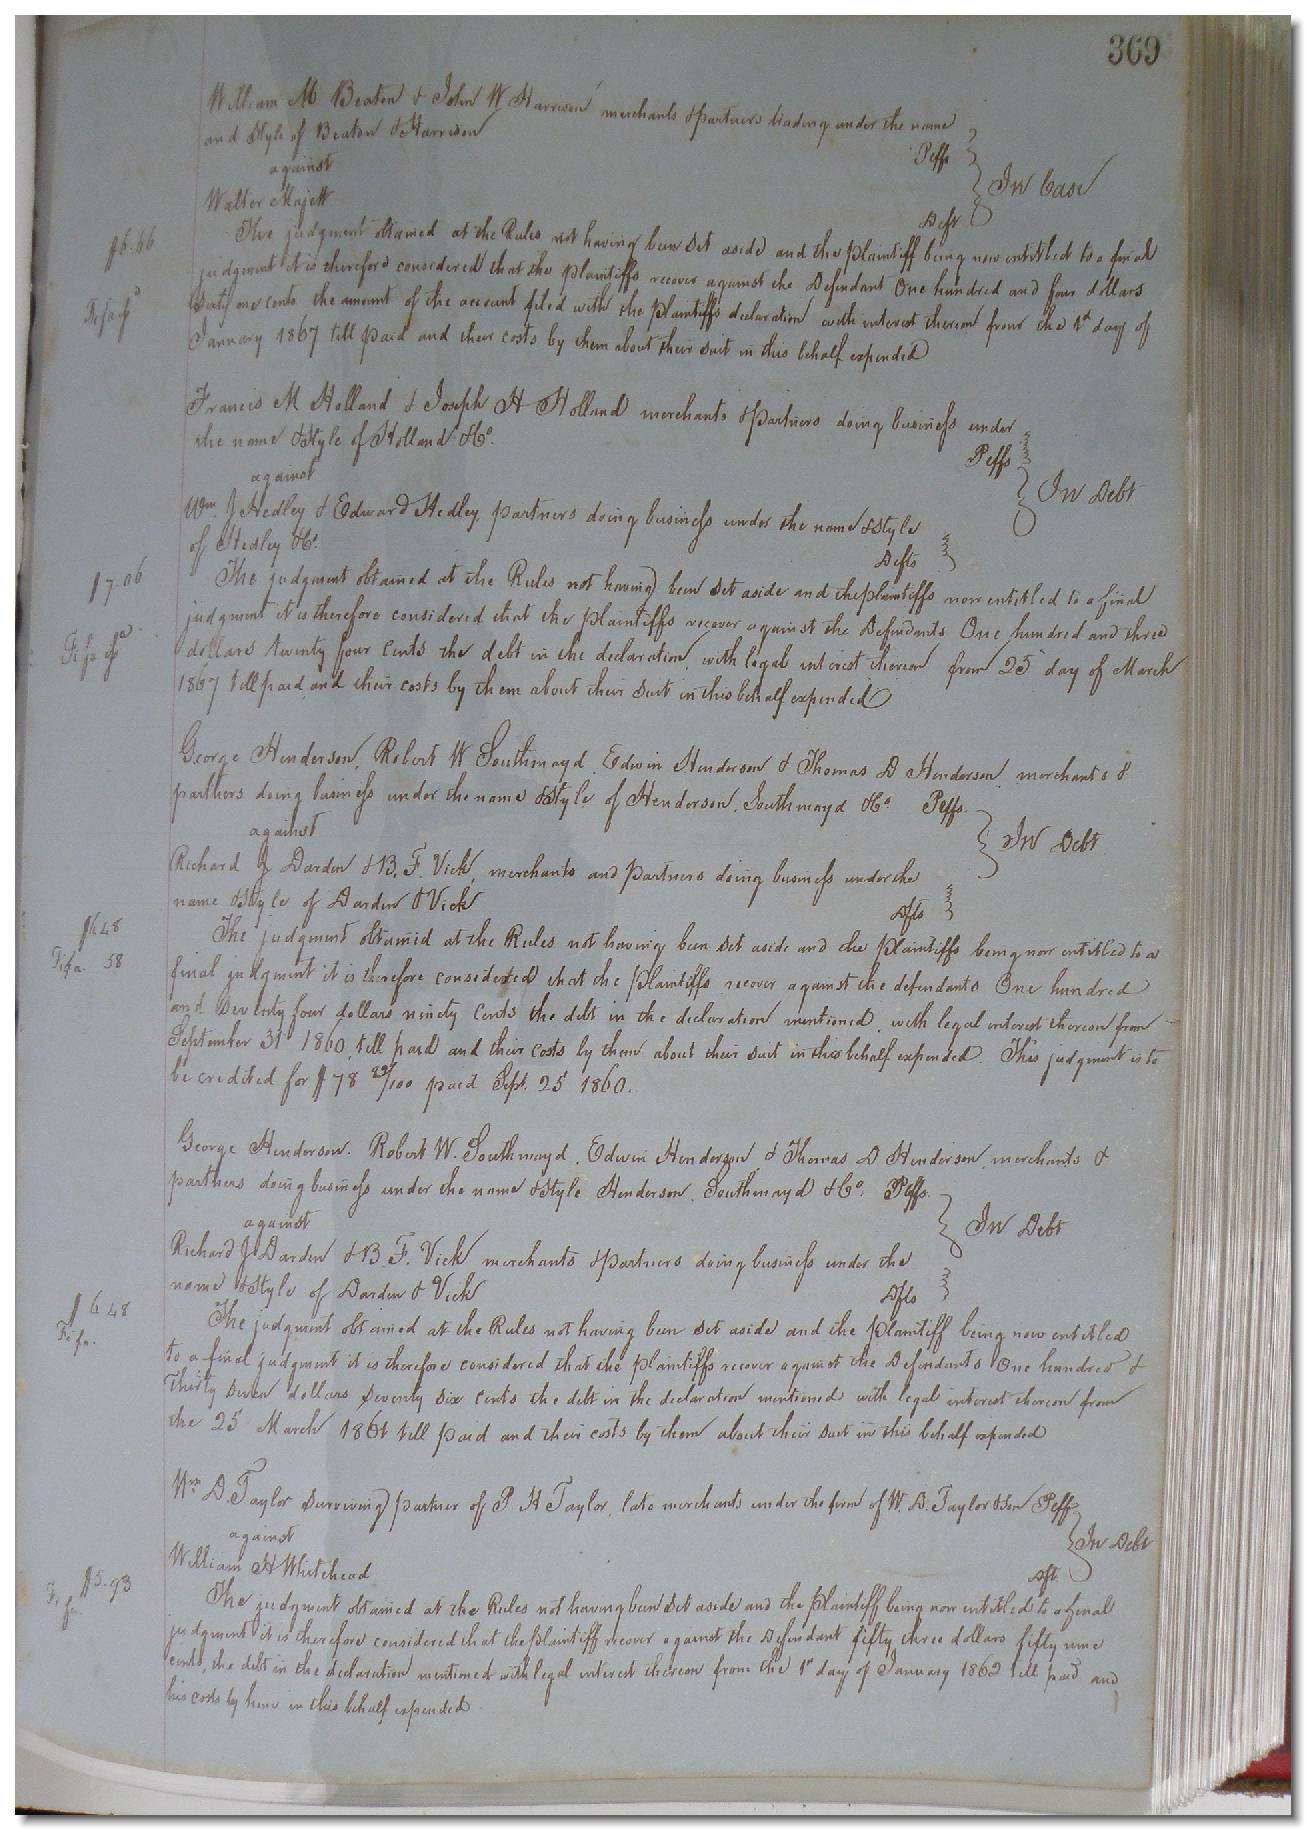 369
William M Beaton & John W Harrison merchants & partners trading under the name
and Style of Beaton & Harrison Peffs
against In Case
Walter Majett Deft
$6.66 The judgment obtained at the Rules not having been set aside and the plaintiff being now entitled to a final
judgment it is therefore considered that the plaintiffs recover against the Defendant One hundred and four dollars
Sixty one cents the amount of the account filed with the plaintiffs declaration with interest thereon from the 1st day of
January 1867 till paid and their costs by them about their suit in this behalf expended
Francis M Holland & Joseph H Holland merchants & partners doing business under
the name & Style of Holland & Co. Peffs
against In Debt
Wm. J Hedley & Edward Hedley, partners doing business under the name & Style
of Hedley & Co. Defts
$7.06 The judgment obtained at the Rules not having been set aside and the plaintiffs now entitled to a final
judgment it is therefore considered that the plaintiffs recover against the Defendants One hundred and three
Fi fa
dollars twenty four cents the debt in the declaration, with legal interest thereon from 25 day of March
1867 till paid and their costs by them about their suit in this behalf expended
George Henderson, Robert W Southmayd, Edwin Henderson & Thomas D Henderson, merchants &
partners doing business under the name & Style of Henderson, Southmayd & Co. Peffs.
against In Debt
Richard J Darden & B. F. Vick, merchants and partners doing business under the
name & Style of Darden & Vick Dfts
$6.48 The judgment obtained at the Rules not having been set aside and the plaintiffs being now entitled to a
Fi fa. 58 final judgment it is therefore considered that the plaintiffs recover against the defendants One hundred
and Seventy four dollars ninety cents the debt in the declaration mentioned, with legal interest thereon from
September 31 1860, till paid and their costs by them about their suit in this behalf expended. This judgment is to
be credited for $78 /100 paid Sept. 25 1860.
George Henderson. Robert W. Southmayd, Edwin Henderson, & Thomas D Henderson, merchants &
partners doing business under the name & Style Henderson, Southmayd & Co. Peffs.
against In Debt
Richard J Darden & B F. Vick merchants & partners doing business under the
name & Style of Darden & Vick Dfts
$6 48 The judgment obtained at the Rules not having been set aside and the plaintiff being now entitled
Fi fa. to a final judgment it is therefore considered that the plaintiffs recover against the Defendants One hundred &
Thirty seven dollars seventy six cents the debt in the declaration mentioned with legal interest thereon from
the 25 March 1861 till paid and their costs by them about their suit in this behalf expended
Wm D. Taylor surviving partner of P H Taylor, late merchants under the firm of W. D. Taylor & Son Peff
against In Debt
William H Whitehead Dft.
$5.93 The judgment obtained at the Rules not having been set aside and the plaintiff being now entitled to a final
Fi fa. judgment it is therefore considered that the plaintiff recover against the Defendant fifty three dollars fifty nine
cents, the debt in the declaration mentioned with legal interest thereon from the 1st day of January 1862 till paid and
his costs by him in this behalf expended